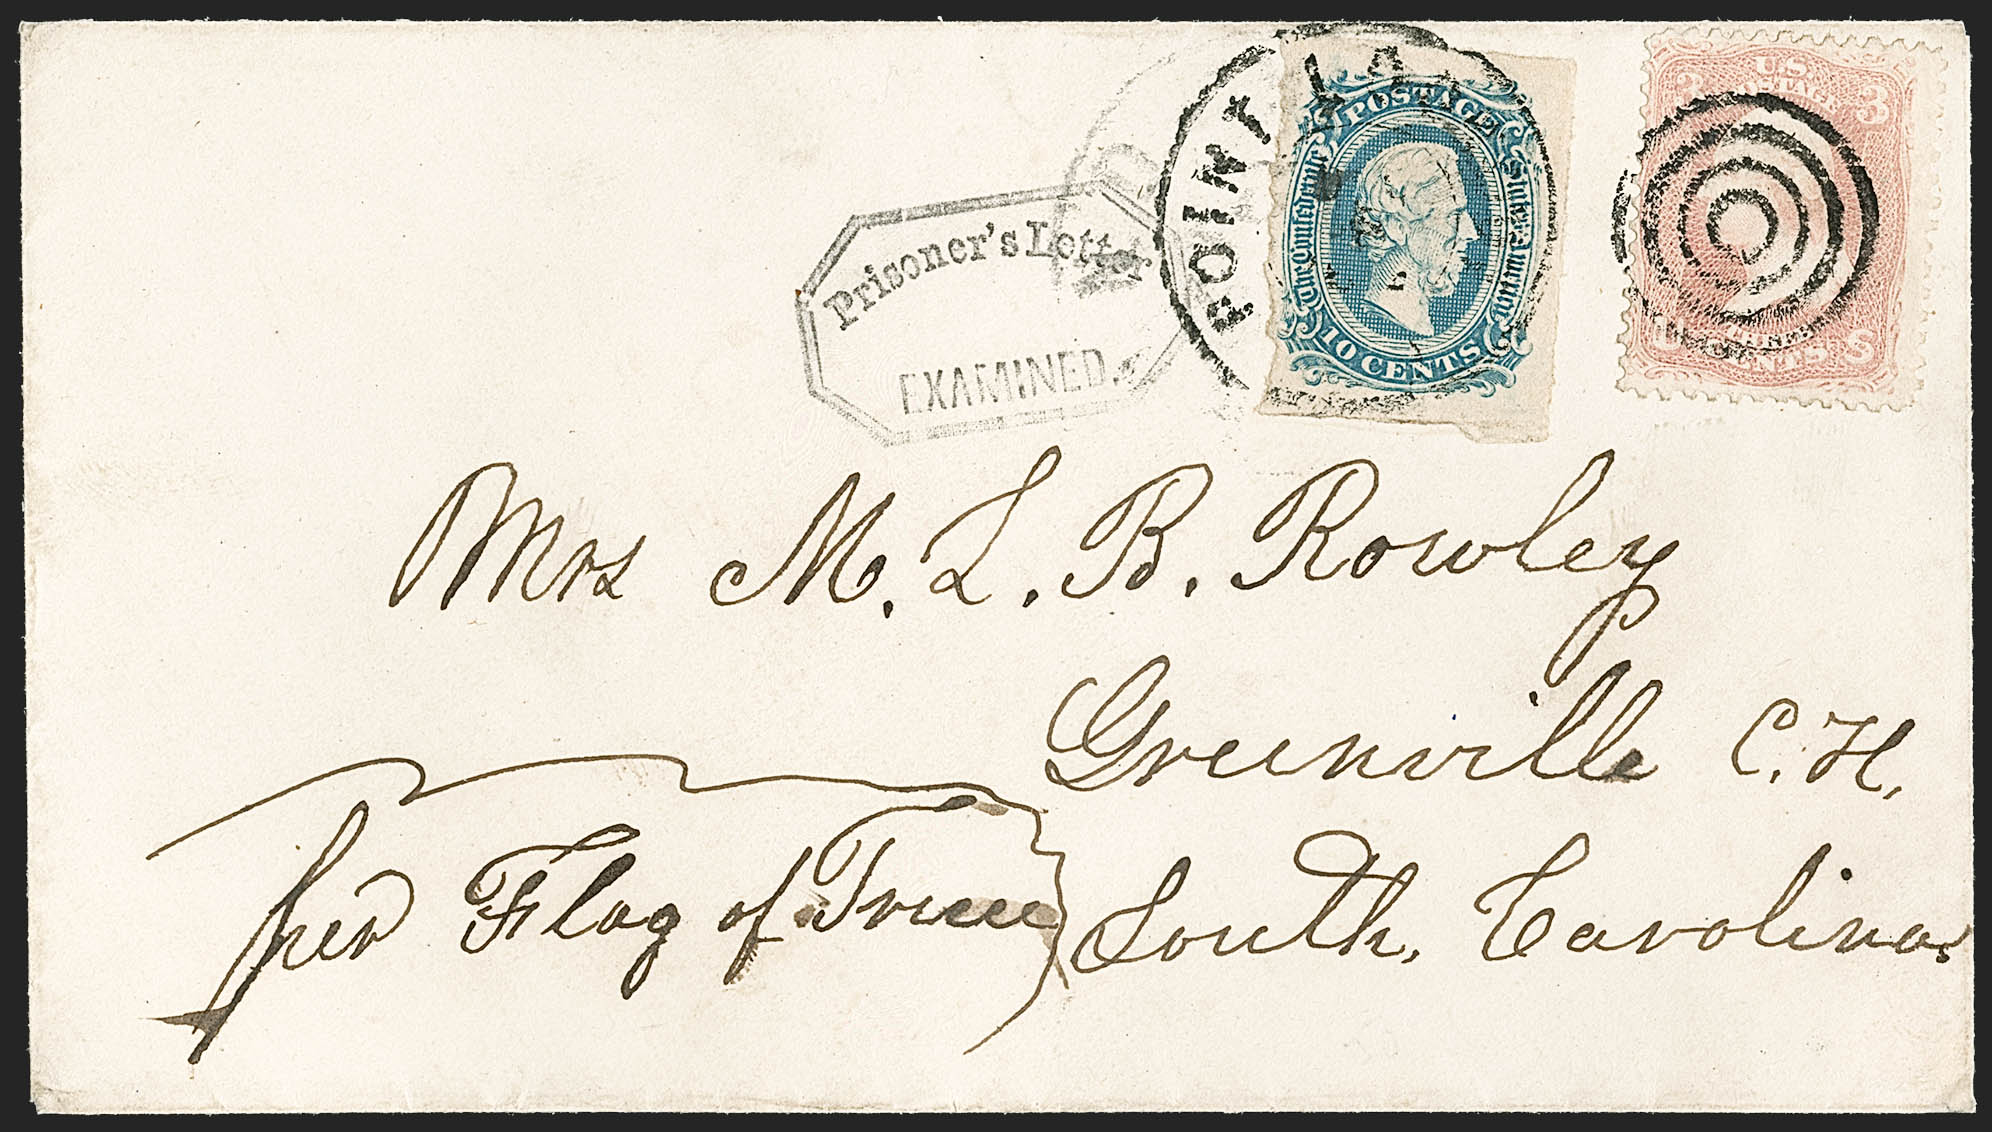 POINT LA
POSTAGE
The Confederate States of America
10 CENTS
U.S.
POSTAGE
3 3
THREE
CENTS
Prisoner's Letter
EXAMINED.
Mrs M. L. B. Rowley
Greenville C. H.
South, Carolina.
per Flag of Truce